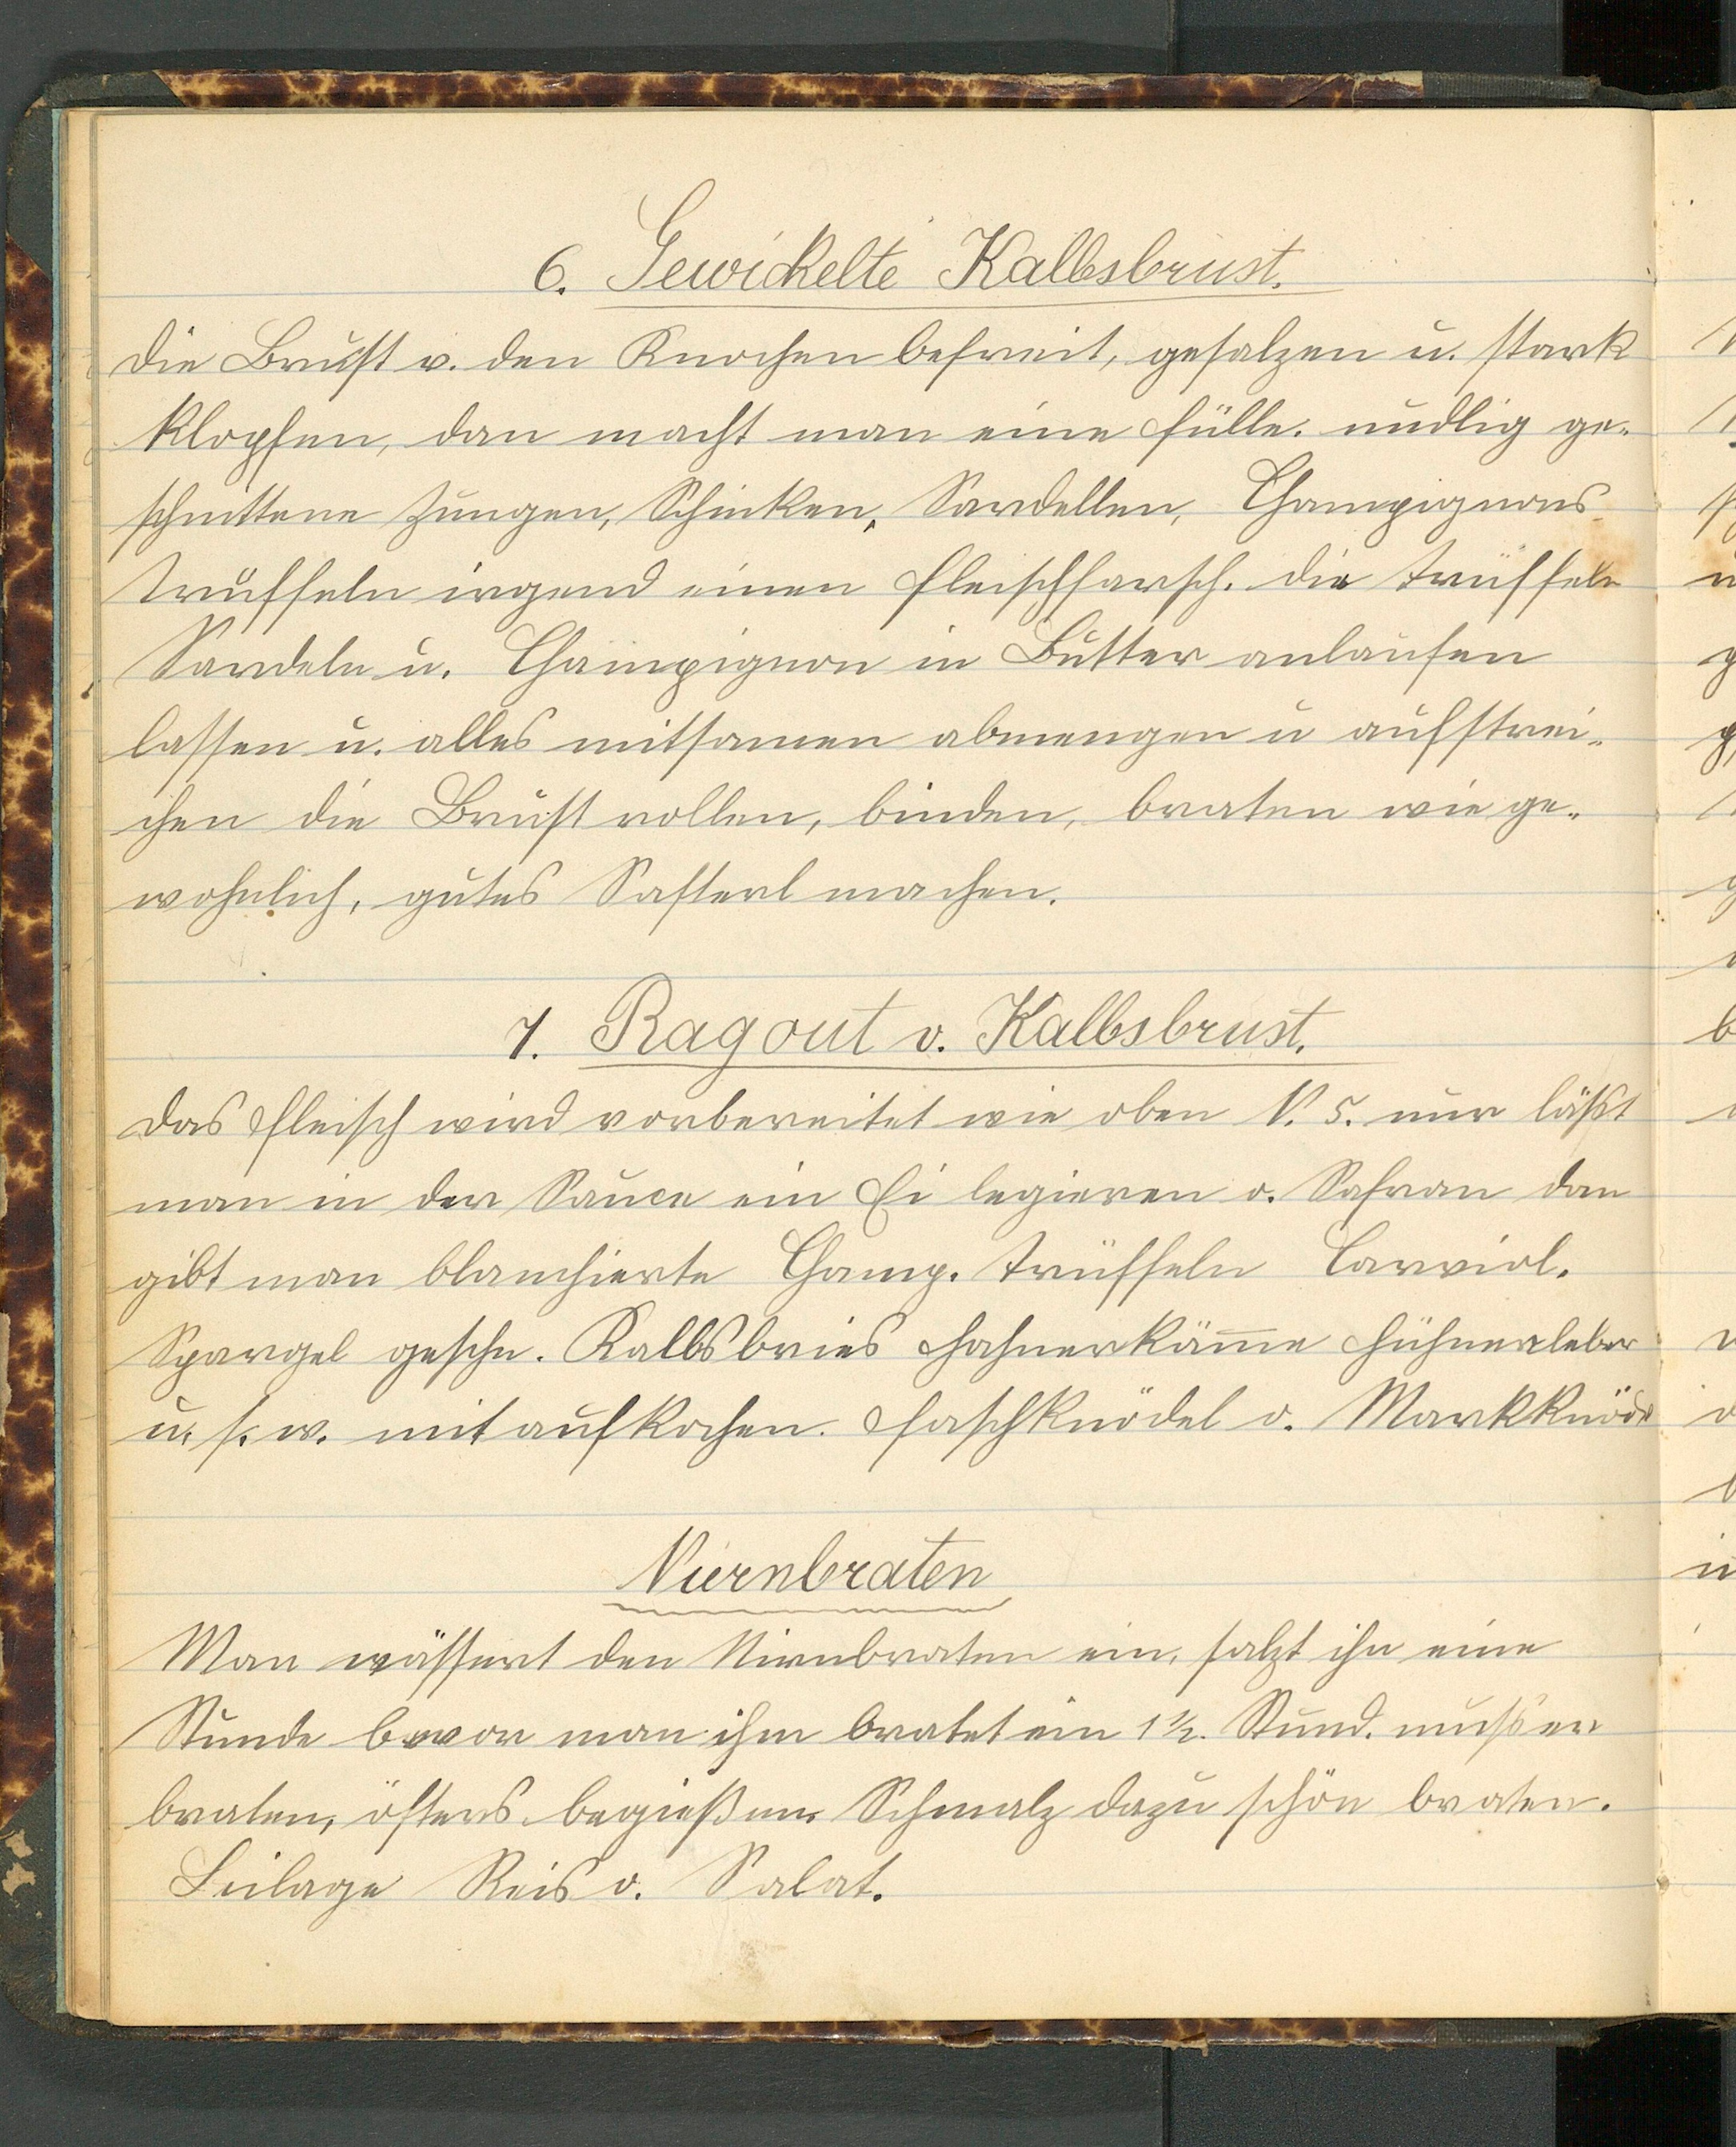 6. Gewickelte Kalbsbrust.
Die Brust v. den Knochen befreit, gesalzen u. stark
klopfen, dan macht man eine Fülle. nudlig ge-
schnittene Zungen, Schinken, Sardellen, Champignons
Trüffeln irgend einen Fleischfarsch. die Trüffeln
Sardeln u. Champignon in Butter anlaufen
lassen u. alles mitsamen abmengen u aufstrei-
chen die Brust rollen, binden, braten wie ge-
wohnlich, gutes Safterl machen.
7. Ragout v. Kalbsbrust.
Das Fleisch wird vorbereitet wie oben N. 5. nur läßt
man in der Sauce ein Ei legieren o. Safran dan
gibt man blanchierte Champ. Trüffeln Carviol.
Spargel geschn. Kalbsbries Hahnerkämme Hühnerleber
u. s. w. mit aufkochen. Faschknödel o. Markknödl
Niernbraten
Man wässert den Nirnbraten ein, salzt ihn eine
Stunde bevor man ihm bratet ein 1½. Stund. muß er
braten, öfters begießen. Schmalz dazu schön braten.
Beilage Reis o. Salat.